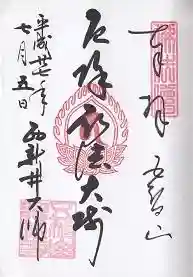 奉拝
五智山
厄除弘法大師
西新井大師
平成廿七年
七月五日